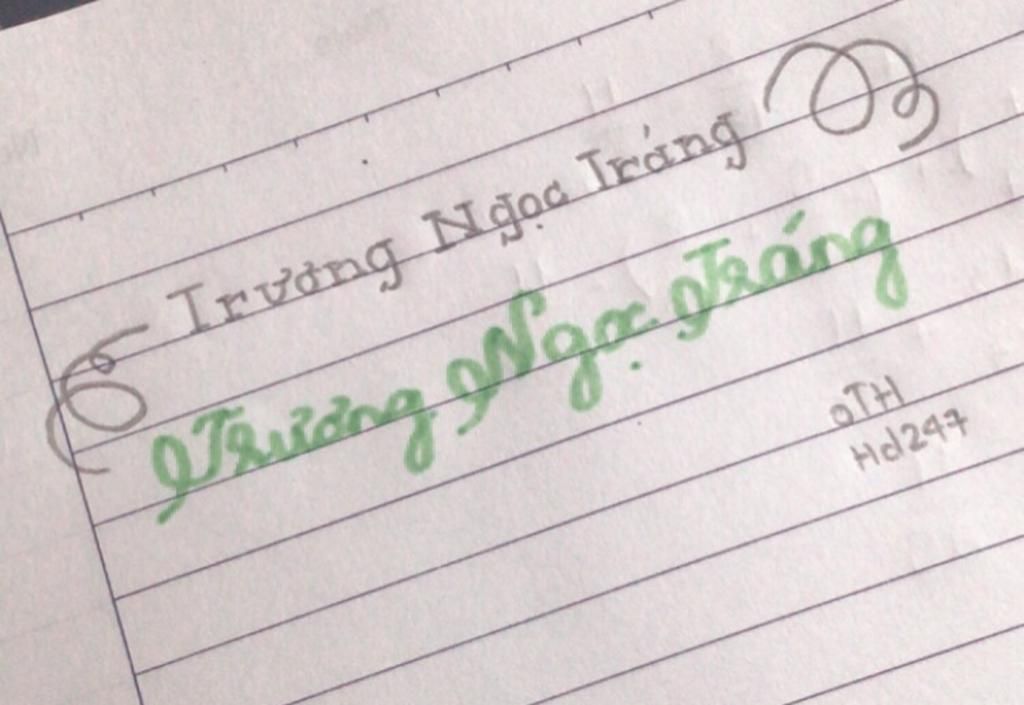 Trương Ngọc Tráng
Trương Ngọc Tráng
TH
Hd247